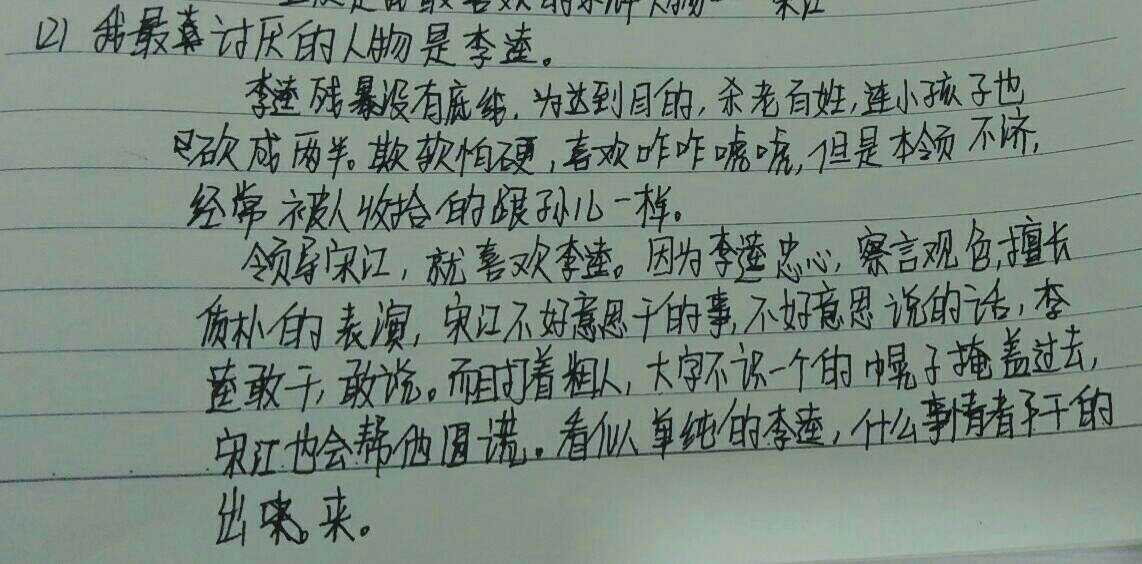 (2) 我最喜讨厌的人物是李逵。
李逵残暴没有底线,为达到目的,杀老百姓,连小孩子也
砍成两半。欺软怕硬,喜欢咋咋唬唬,但是本领不济,
经常被人收拾的跟孙儿一样。
领导宋江,就喜欢李逵。因为李逵忠心,察言观色,擅长
质朴的表演,宋江不好意思干的事,不好意思说的话,李
逵敢干,敢说。而且打着粗人,大字不识一个的幌子掩盖过去,
宋江也会帮他圆谎。看似单纯的李逵,什么事情都干的
出来。来。